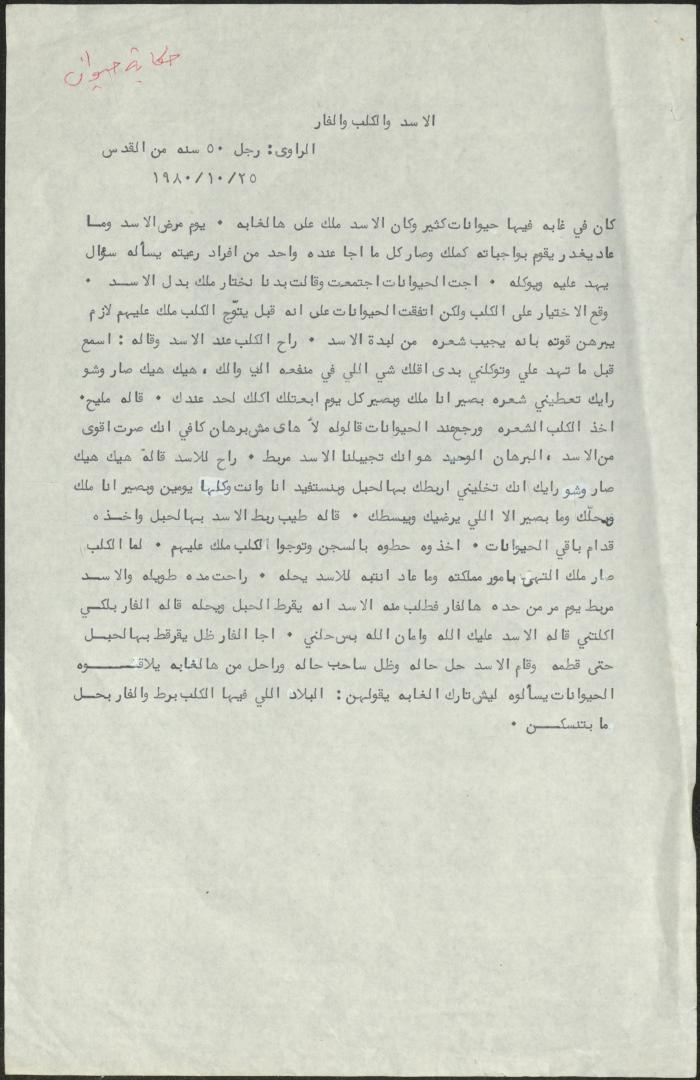 حكاية حيوان
الاسد والكلب والفار
الراوى: رجل ٥٠ سنه من القدس
١٩٨٠/١٠/٢٥
كان في غابه فيها حيوانات كثير وكان الاسد ملك على هالغابه ٠ يوم مرض الاسد وما
عاد يغدر يقوم بواجباته كملك وصار كل ما اجا عنده واحد من افراد رعيته يسأله سؤال
يهد عليه ويوكله ٠ اجت الحيوانات اجتمعت وقالت بدنا نختار ملك بدل الاسد ٠
وقع الاختيار على الكلب ولكن اتفقت الحيوانات على انه قبل يتوّج الكلب ملك عليهم لازم
يبرهن قوته بانه يجيب شعره من لبدة الاسد ٠ راح الكلب عند الاسد وقاله: اسمع
قبل ما تهد علي وتوكلني بدى اقلك شي اللي في منفعه الي والك، هيك هيك صار وشو
رايك تعطيني شعره بصير انا ملك وبصير كل يوم ابعتلك اكلك لحد عندك ٠ قاله مليح٠
اخذ الكلب الشعره ورجع عند الحيوانات قالوله لأ هاى مش برهان كافي انك صرت اقوى
من الاسد، البرهان الوحيد هو انك تجيبلنا الاسد مربط ٠ راح للاسد قاله هيك هيك
صار وشو رايك انك تخليني اربطك بهالحبل وبنستفيد انا وانت وكلها يومين وبصير انا ملك
وبحلّك وما بصير الا اللي يرضيك ويبسطك ٠ قاله طيب ربط الاسد بهالحبل واخذه
قدام باقي الحيوانات ٠ اخذوه حطوه بالسجن وتوجوا الكلب ملك عليهم ٠ لما الكلب
صار ملك التهى بامور مملكته وما عاد انتبه للاسد يحله ٠ راحت مده طويله والاسد
مربط يوم مر من حده هالفار فطلب منه الاسد انه يقرط الحبل ويحله قاله الفار بلكي
اكلتني قاله الاسد عليك الله وامان الله بس حلني ٠ اجا الفار ظل يقرقط بهالحبل
حتى قطمه وقام الاسد حل حاله وظل ساحب حاله وراحل من هالغابه يلاقوه
الحيوانات يسألوه ليش تارك الغابه يقولهن: البلاد اللي فيها الكلب برط والفار بحل
ما بتنسكن ٠